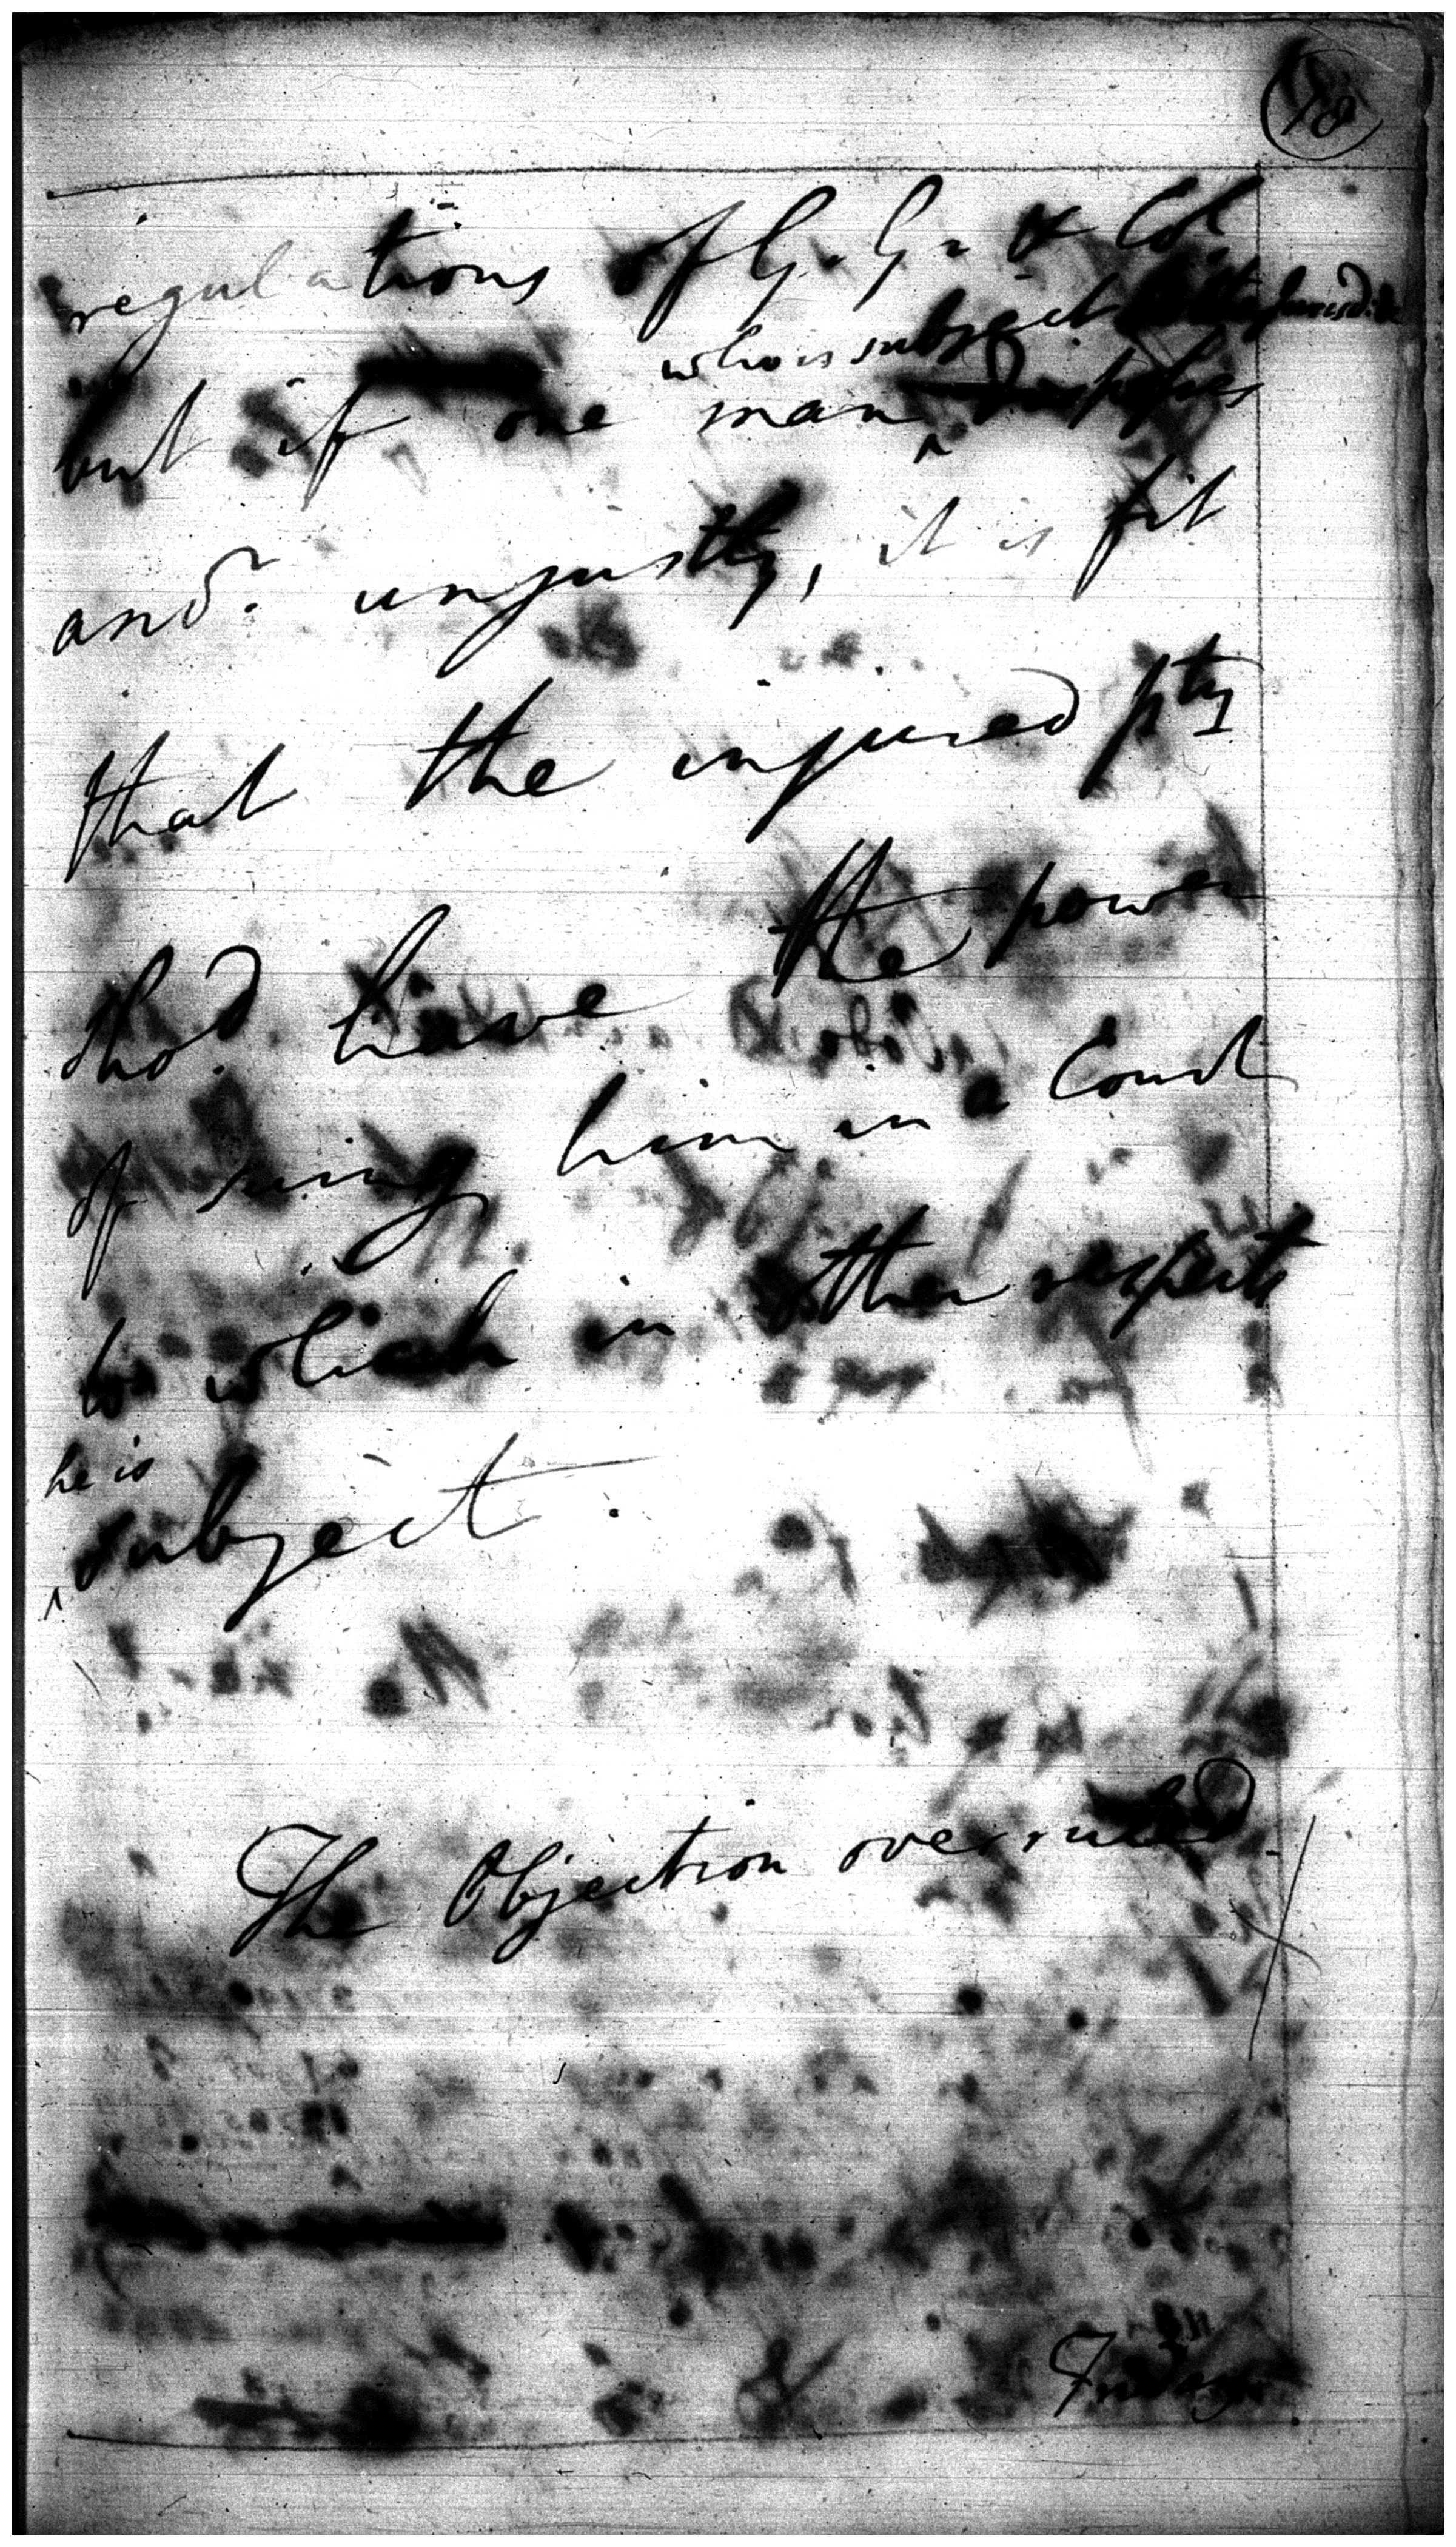 78
regulations of G. G. & Col
who is subject to the Jurisd:
but if one man dispossess
anor. unjustly, it is fit
that the injured pty
shod. have the power
of suing him in a Court
to which in other respects
he is
subject.
The Objection overruled
Friday